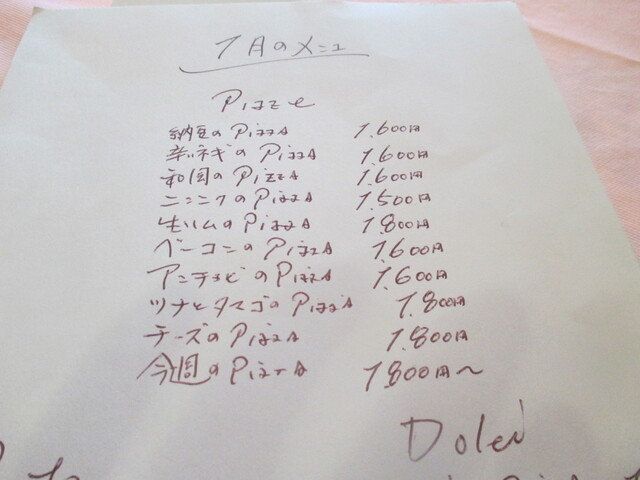 1月のメニュ
Pizze
納豆のPizzA 1,600円
辛いネギのPizzA 1,600円
和風のPizzA 1,600円
ニンニクのPizzA 1,500円
生ハムのPizzA 1,800円
ベーコンのPizzA 1,600円
アンチョビのPizzA 1,600円
ツナとタマゴのPizzA 1,800円
チーズのPizzA 1,800円
今週のPizzA 1800円〜
Dolci